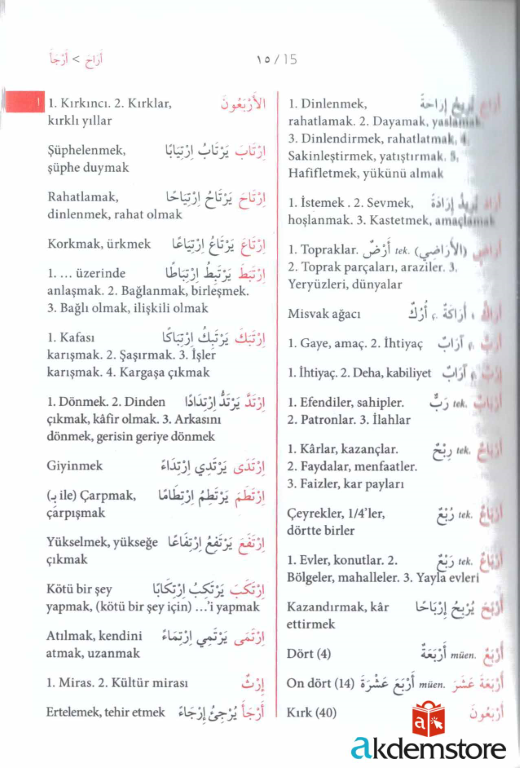 أَرَاحَ > أَرْجَأَ
١٥ / 15
أَرَاحَ يُرِيحُ إِرَاحَةً 1. Dinlenmek,
rahatlamak. 2. Dayamak, yaslamak.
3. Dinlendirmek, rahatlatmak. 4.
Sakinleştirmek, yatıştırmak. 5.
Hafifletmek, yükünü almak
أَرَادَ يُرِيدُ إِرَادَةً 1. İstemek . 2. Sevmek,
hoşlanmak. 3. Kastetmek, amaçlamak
أَرَاضٍ (الأَرَاضِي) tek. أَرْضٌ 1. Topraklar.
2. Toprak parçaları, araziler. 3.
Yeryüzleri, dünyalar
أَرَاكٌ ج أَرَاكَةٌ ج أُرُكٌ Misvak ağacı
أَرَبٌ ج آرَابٌ 1. Gaye, amaç. 2. İhtiyaç
إِرْبٌ ج آرَابٌ 1. İhtiyaç. 2. Deha, kabiliyet
أَرْبَابٌ tek. رَبٌّ 1. Efendiler, sahipler.
2. Patronlar. 3. İlahlar
أَرْبَاحٌ tek. رِبْحٌ 1. Kârlar, kazançlar.
2. Faydalar, menfaatler.
3. Faizler, kar payları
أَرْبَاعٌ tek. رُبْعٌ Çeyrekler, 1/4'ler,
dörtte birler
أَرْبَاعٌ tek. رَبْعٌ 1. Evler, konutlar. 2.
Bölgeler, mahalleler. 3. Yayla evleri
أَرْبَحَ يُرْبِحُ إِرْبَاحًا Kazandırmak, kâr
ettirmek
أَرْبَعٌ müen. أَرْبَعَةٌ Dört (4)
أَرْبَعَةَ عَشَرَ müen. أَرْبَعَ عَشْرَةَ On dört (14)
أَرْبَعُونَ Kırk (40)
ا
الأَرْبَعُونَ 1. Kırkıncı. 2. Kırklar,
kırklı yıllar
اِرْتَابَ يَرْتَابُ اِرْتِيَابًا Şüphelenmek,
şüphe duymak
اِرْتَاحَ يَرْتَاحُ اِرْتِيَاحًا Rahatlamak,
dinlenmek, rahat olmak
اِرْتَاعَ يَرْتَاعُ اِرْتِيَاعًا Korkmak, ürkmek
اِرْتَبَطَ يَرْتَبِطُ اِرْتِبَاطًا 1. ... üzerinde
anlaşmak. 2. Bağlanmak, birleşmek.
3. Bağlı olmak, ilişkili olmak
اِرْتَبَكَ يَرْتَبِكُ اِرْتِبَاكًا 1. Kafası
karışmak. 2. Şaşırmak. 3. İşler
karışmak. 4. Kargaşa çıkmak
اِرْتَدَّ يَرْتَدُّ اِرْتِدَادًا 1. Dönmek. 2. Dinden
çıkmak, kâfir olmak. 3. Arkasını
dönmek, gerisin geriye dönmek
اِرْتَدَى يَرْتَدِي اِرْتِدَاءً Giyinmek
اِرْتَطَمَ يَرْتَطِمُ اِرْتِطَامًا (بِ ile) Çarpmak,
çarpışmak
اِرْتَفَعَ يَرْتَفِعُ اِرْتِفَاعًا Yükselmek, yükseğe
çıkmak
اِرْتَكَبَ يَرْتَكِبُ اِرْتِكَابًا Kötü bir şey
yapmak, (kötü bir şey için) ...'i yapmak
اِرْتَمَى يَرْتَمِي اِرْتِمَاءً Atılmak, kendini
atmak, uzanmak
إِرْثٌ 1. Miras. 2. Kültür mirası
أَرْجَأَ يُرْجِئُ إِرْجَاءً Ertelemek, tehir etmek
akdemstore